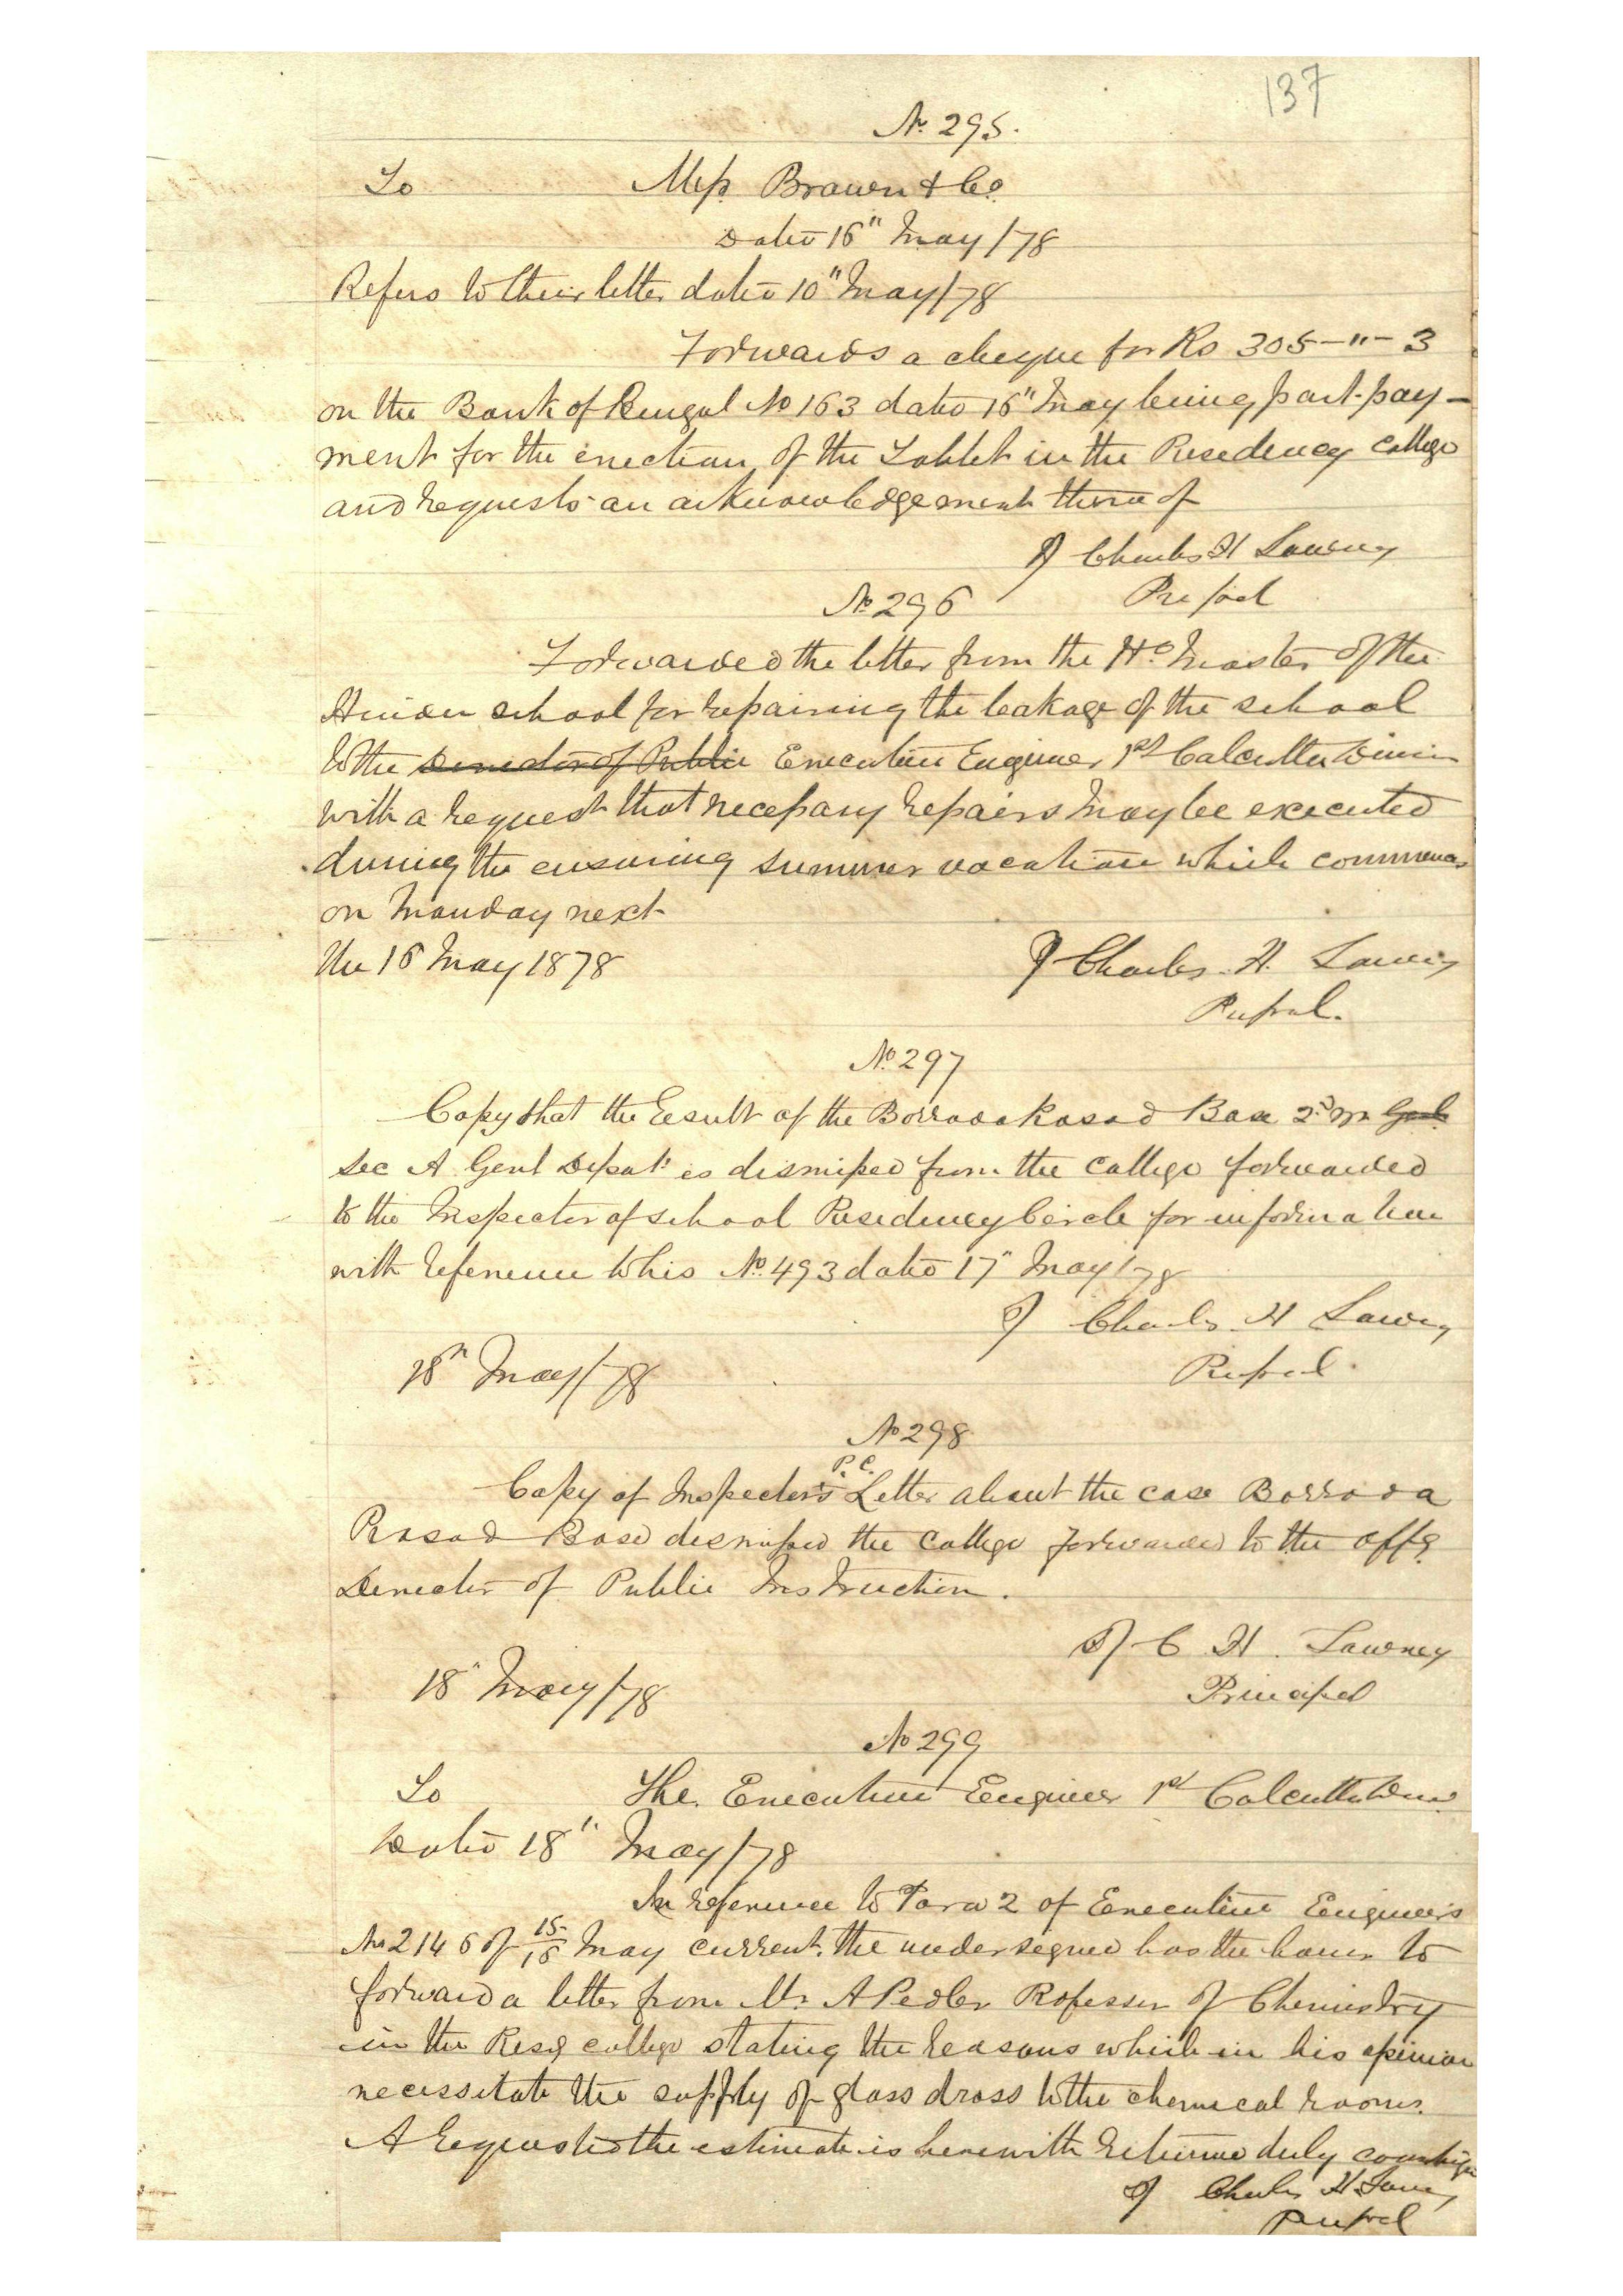 137
No 295.
To Mess. Brown & Co.
Dated 16" May/78
Refers to their letter dated 10" May/78
Forwards a cheque for Rs 305-"-3
on the Bank of Bengal No 163 dated 16" May being part-pay-
ment for the erection of the Tablet in the Presidency College
and requests an acknowledgement there of
Charles H Tawney
Prinpal
No 296
Forwarded the letter from the Hd. Master of the
Hindu school for repairing the leakage of the school
to the Director of Public Executive Engineer 1st Calcutta Divin
with a request that necessary repairs may be executed
during the ensuring summer vacation which commences
on Monday next
The 16 May 1878
Charles. H. Tawney
Prinpal.
No 297
Copy that the result of the Borroda Rosad Bose 2d yr
Sec A Genl Depat is dismissed from the College forwarded
to the Inspector of school Presidency Circle for information
with reference to his No. 493 dated 17" May/78
Charles H Tawney
18" May/78 Prinpal.
No 298
P.C.
Copy of Inspector's Letter about the case Borroda
Prosad Bose dismissed the College forwarded to the Offg
Director of Public Instruction.
C. H. Tawney
18" May/78 Principal
No 299
To The Executive Engineer 1st Calcutta Divn
Dated 18" May/78
In reference to Para 2 of Executive Engineers
No 2146 of 15/16 May current, the undersigned has the honor to
forward a letter from Mr. A Pedler Professor of Chemistry
in the Presy college stating the reasons which in his opinion
necessitate the supply of glass dross to the chemical rooms.
A requested the estimate is herewith returned duly countsign
Charles H Tawney
Prinpal